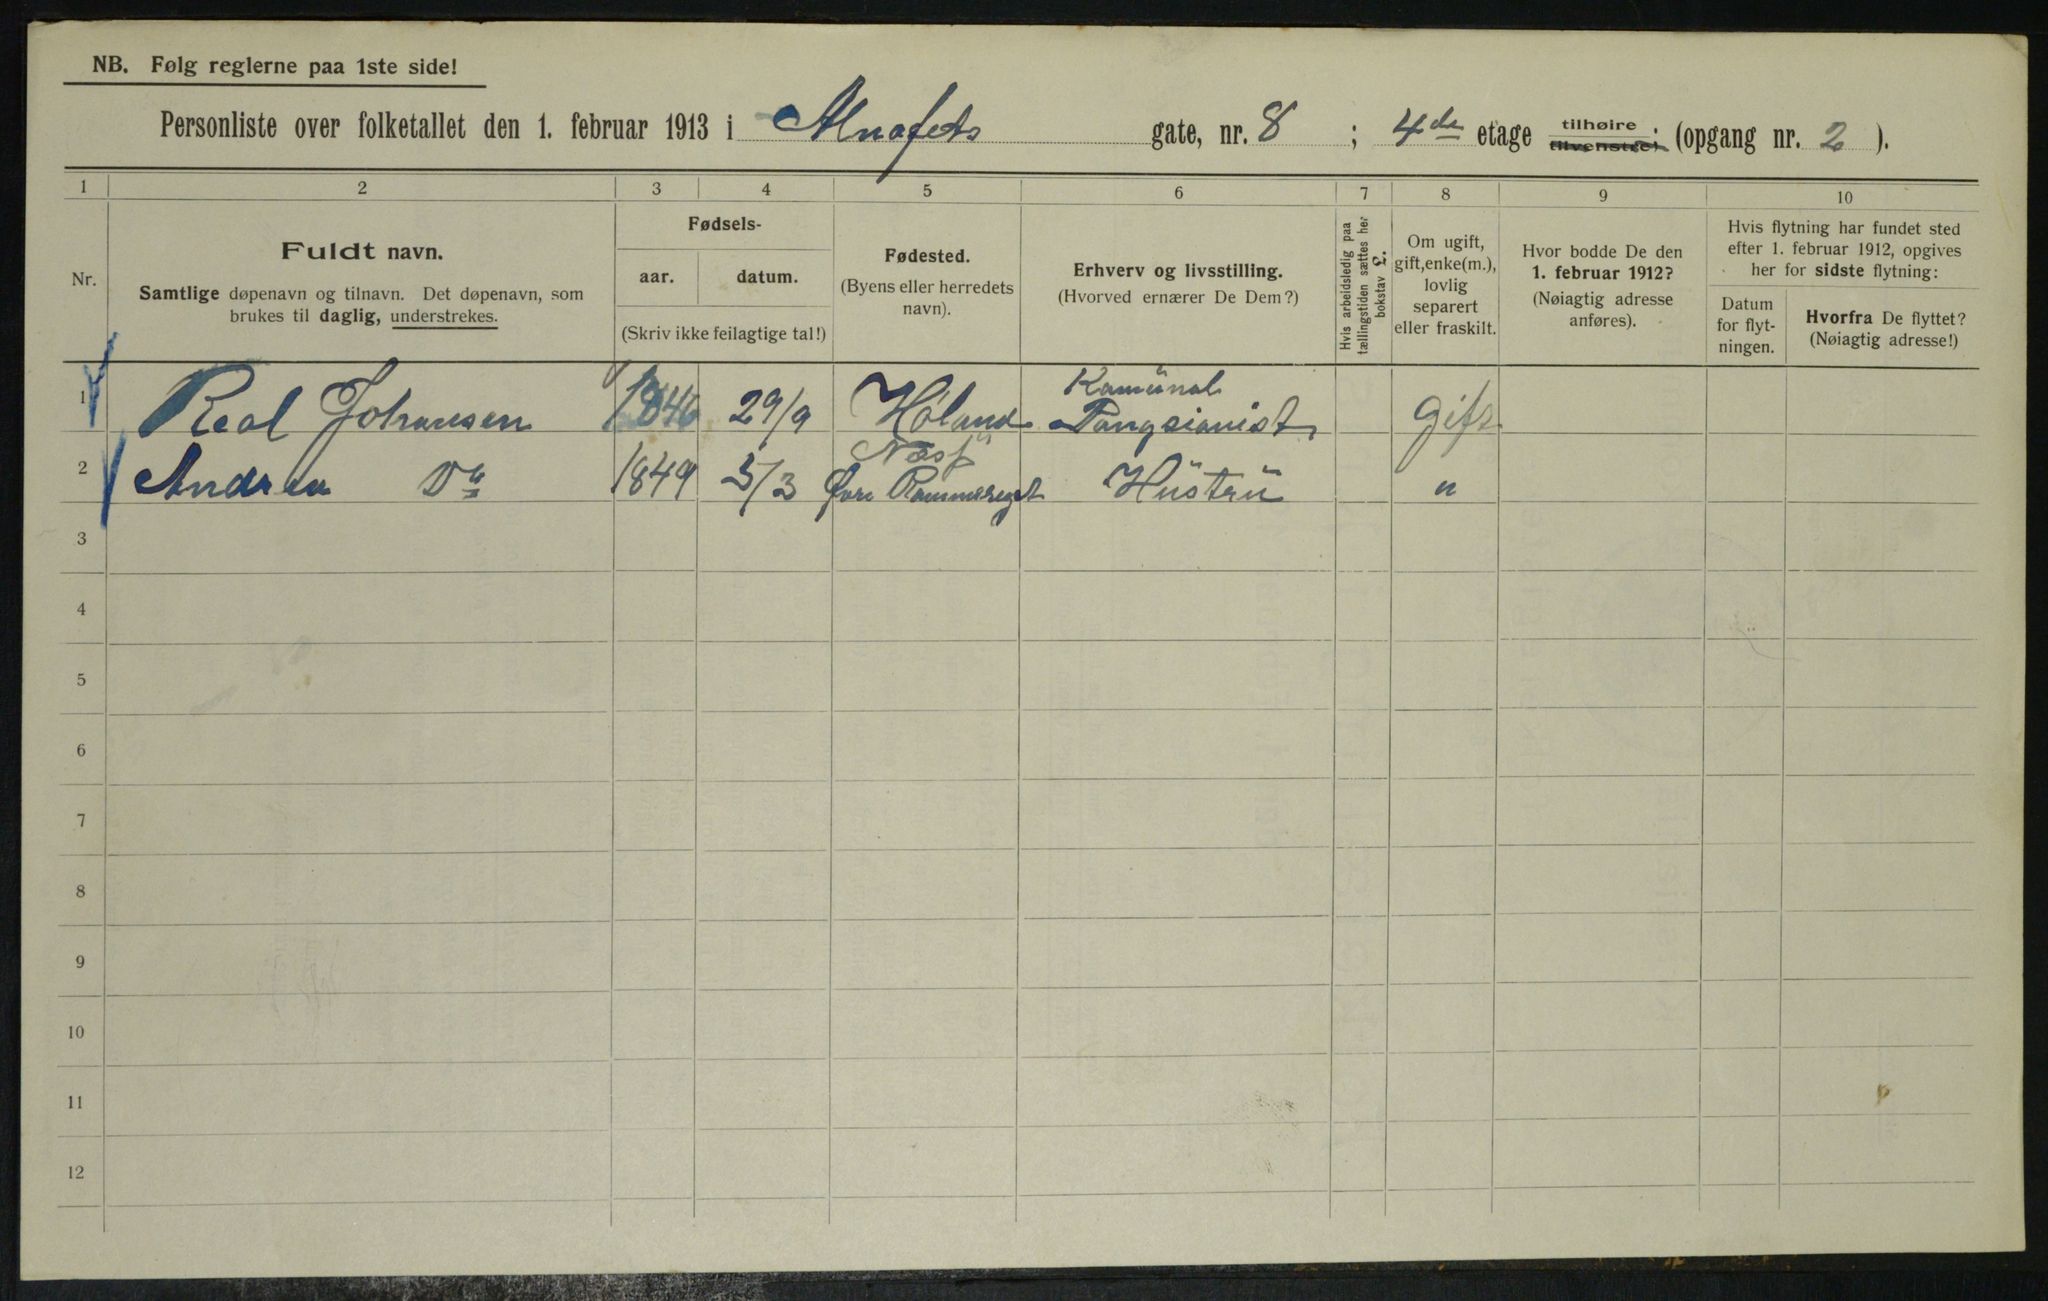 NB. Følg reglerne paa 1ste side!
Personliste over folketallet den 1. februar 1913 i Alnafets gate, nr. 8 ; 4de etage tilhøire (opgang nr. 2 ).
tilvenstre;
1 2 3 4 5 6 7 8 9 10
Nr.
Fuldt navn.
Samtlige døpenavn og tilnavn. Det døpenavn, som
brukes til daglig, understrekes.
Fødsels-
aar. datum.
(Skriv ikke feilagtige tal!)
Fødested.
(Byens eller herredets
navn).
Erhverv og livsstilling.
(Hvorved ernærer De Dem?)
Hvis arbeidsledig paa
tællingstiden sættes her
bokstav L.
Om ugift,
gift, enke(m.),
lovlig
separert
eller fraskilt.
Hvor bodde De den
1. februar 1912?
(Nøiagtig adresse
anføres).
Hvis flytning har fundet sted
efter 1. februar 1912, opgives
her for sidste flytning:
Datum
for flyt-
ningen.
Hvorfra De flyttet?
(Nøiagtig adresse!)
Kamünal
1 Johansen 1846 29/9 Høland Pangsianist gift
Næs
2 Andrea Do 1849 5/3 Øvre Hüstrü "
3
4
5
6
7
8
9
10
11
12